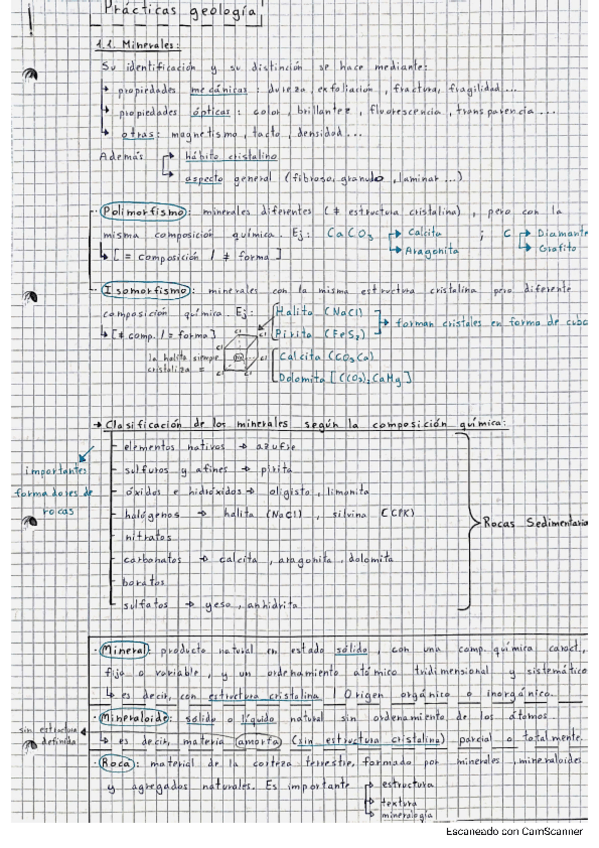 Prácticas geología
1.1. Minerales:
Su identificación y su distinción se hace mediante:
↳ propiedades mecánicas: dureza, exfoliación, fractura, fragilidad...
↳ propiedades ópticas: color, brillantez, fluorescencia, transparencia...
↳ otras: magnetismo, tacto, densidad...
Además → hábito cristalino
↳ aspecto general (fibroso, granulo, laminar...)
· Polimorfismo: minerales diferentes (≠ estructura cristalina), pero con la
misma composición química. Ej: CaCO3 → Calcita ; C → Diamante
↳ Aragonita ↳ Grafito
↳ [ = composición / ≠ forma ]
· Isomorfismo: minerales con la misma estructura cristalina pero diferente
composición química. Ej: Halita (NaCl)
↳ [≠ comp. / = forma] Pirita (FeS2) → forman cristales en forma de cubo
la halita siempre
cristaliza =
Cl Cl Cl Cl
Calcita (CO3Ca)
Dolomita [(CO3)2CaMg]
→ Clasificación de los minerales según la composición química:
- elementos nativos → azufre
importantes
formadores de
rocas
- sulfuros y afines → pirita
- óxidos e hidróxidos → oligisto, limonita
- halógenos → halita (NaCl), silvina (ClK)
- nitratos
Rocas Sedimentaria
- carbonatos → calcita, aragonita, dolomita
- boratos
- sulfatos → yeso, anhidrita
· Mineral: producto natural en estado sólido, con una comp. química caract,
fija o variable, y un ordenamiento atómico tridimensional y sistemático
↳ es decir, con estructura cristalina / Origen orgánico o inorgánico.
· Mineraloide: sólido o líquido natural sin ordenamiento de los átomos.
sin estructura
definida
↳ es decir, materia amorfa (sin estructura cristalina) parcial o totalmente.
· Roca: material de la corteza terrestre, formado por minerales, mineraloides
y agregados naturales. Es importante → estructura
→ textura
→ mineralogía
Escaneado con CamScanner